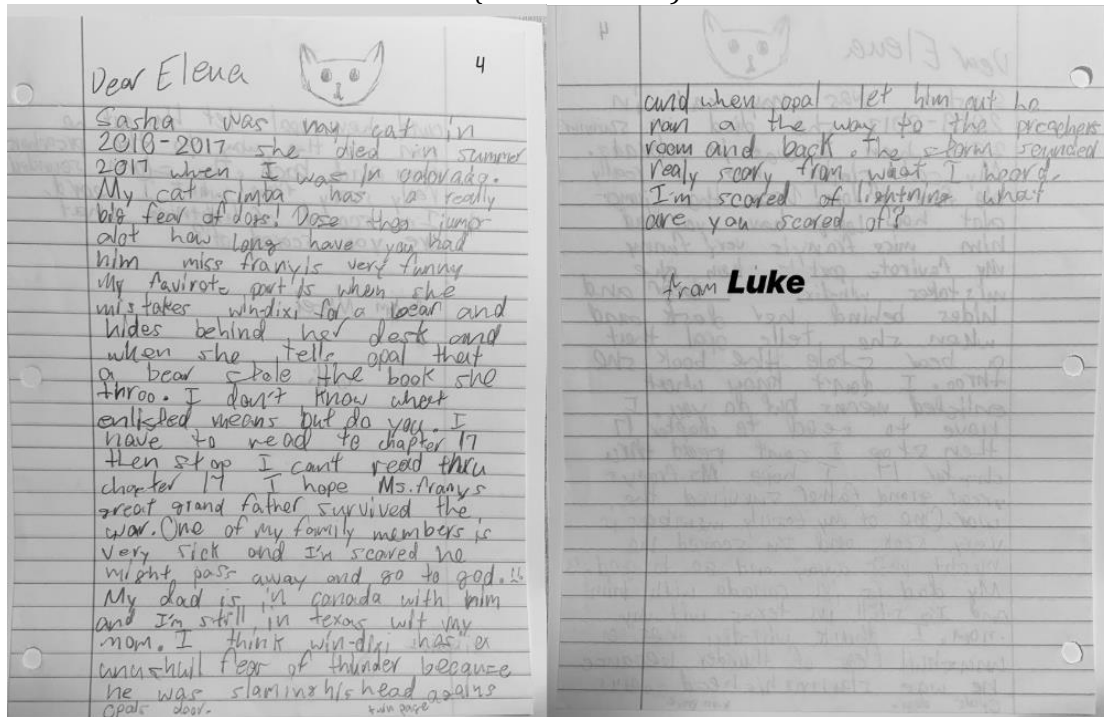 4
Dear Elena
Sasha was my cat in
2016-2017 she died in summer
2017 when I was in colorado.
My cat simba has a really
big fear of dogs! Dose theo jump
alot how long have you had
him miss franyis very funny
My favirote part is when she
mistakes win-dixi for a bear and
hides behind her desk and
when she tells opal that
a bear stole the book she
throo. I don't know what
enlisted means but do you. I
have to read to chapter 17
then stop I cant read thru
chapter 17 I hope Ms.franys
great grand father survived the
war. One of my family members is
very sick and I'm scared he
might pass away and go to god.
My dad is in canada with him
and I'm still in texas wit my
mom. I think win-dixi has a
unushuil fear of thunder because
he was slaminghis head agains
Opals door. turn page
and when opal let him out he
ran a the way to the preachers
room and back. the storm sounded
realy scary from what I heard.
I'm scared of lightning what
are you scared of?
from Luke